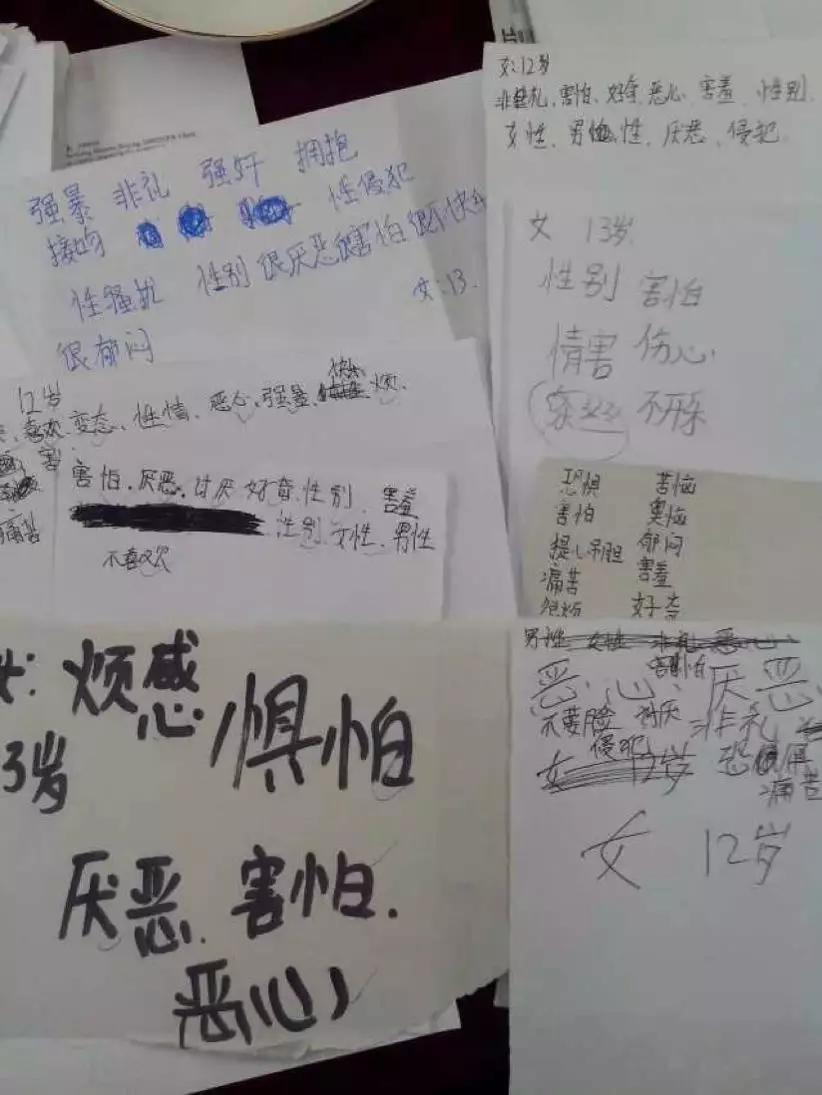 强暴 非礼 强奸 拥抱
接吻 性侵犯
性骚扰 性别 很厌恶 害怕
女:13.
很郁闷
女:12岁
非礼,害怕、好奇,恶心、害羞、性别、
女性、男性、厌恶、侵犯
女 13岁.
性别 害怕
情害 伤心
不开乐
12岁
喜欢、变态、性情、恶心、强暴、烦、
害
痛苦
害怕、厌恶、讨厌 好奇、性别、害羞
性别、女性、男性
不喜欢
恐惧 苦恼
害怕 奥恼
提心吊胆 郁闷
痛苦 害羞
好奇
烦感
3岁
惧怕
厌恶、害怕、
恶心
男性 女性 非礼 恶心
害怕
恶心、厌恶、
不要脸 讨厌 非礼
侵犯
女 12岁 恐惧
痛苦
女 12岁